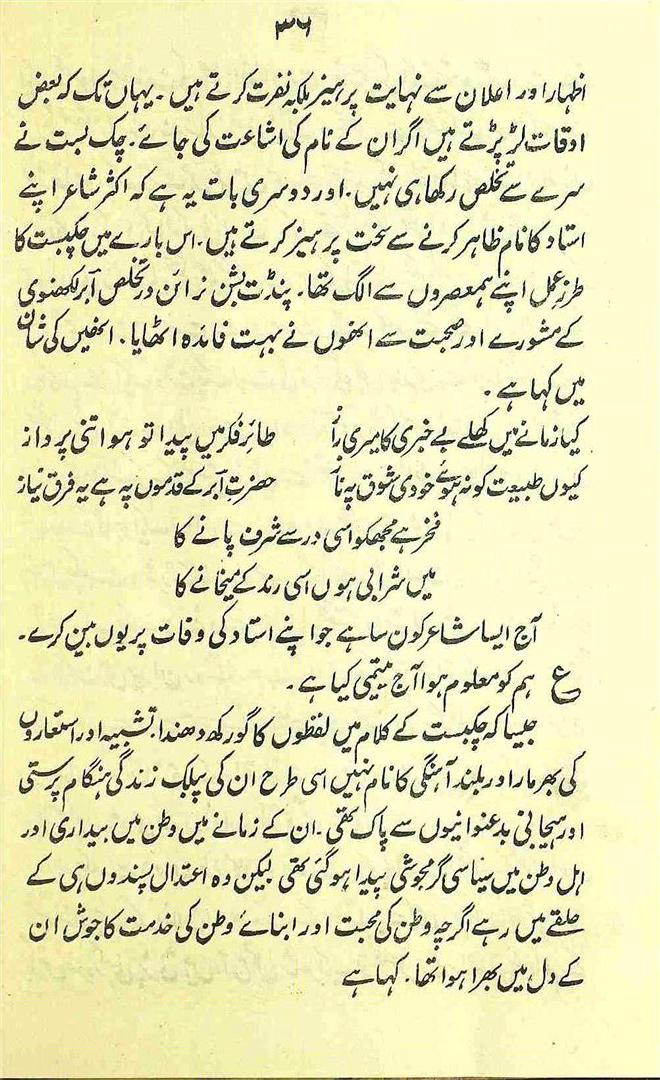 ۳۶
اظہار اور اعلان سے نہایت پرہیز بلکہ نفرت کرتے ہیں۔ یہاں تک کہ بعض
اوقات لڑ پڑتے ہیں اگر ان کے نام کی اشاعت کی جائے۔ چک بست نے
سرے سے تخلص رکھا ہی نہیں۔ اور دوسری بات یہ ہے کہ اکثر شاعر اپنے
استاد کا نام ظاہر کرنے سے سخت پرہیز کرتے ہیں۔ اس بارے میں چکبست کا
طرز عمل اپنے ہمعصروں سے الگ تھا۔ پنڈت بشن نرائن در تخلص آبر لکھنوی
کے مشورے اور صحبت سے انھوں نے بہت فائدہ اٹھایا۔ انھیں کی شان
میں کہا ہے۔
کیا زمانے میں کھلے بے خبری کا میری راز طائر فکر میں پیدا تو ہو اتنی پرواز
کیوں طبیعت کو نہ ہوئے خودی شوق پہ ناز حضرت آبر کے قدموں پہ ہے یہ فرق نیاز
فخر ہے مجھکو اسی در سے شرف پانے کا
میں شرابی ہوں اسی رند کے میخانے کا
آج ایسا شاعر کون سا ہے جو اپنے استاد کی وفات پر یوں بین کرے۔
ع ہم کو معلوم ہوا آج یتیمی کیا ہے۔
جیسا کہ چکبست کے کلام میں لفظوں کا گورکھ دھندا، تشبیہ اور استعاروں
کی بھرمار اور بلند آہنگی کا نام نہیں اسی طرح ان کی پبلک زندگی ہنگام پرستی
اور ہیجانی بدعنوانیوں سے پاک تھی۔ ان کے زمانے میں وطن میں بیداری اور
اہل وطن میں سیاسی گرمجوشی پیدا ہو گئی تھی لیکن وہ اعتدال پسندوں ہی کے
حلقے میں رہے اگرچہ وطن کی محبت اور ابنائے وطن کی خدمت کا جوش ان
کے دل میں بھرا ہوا تھا۔ کہا ہے